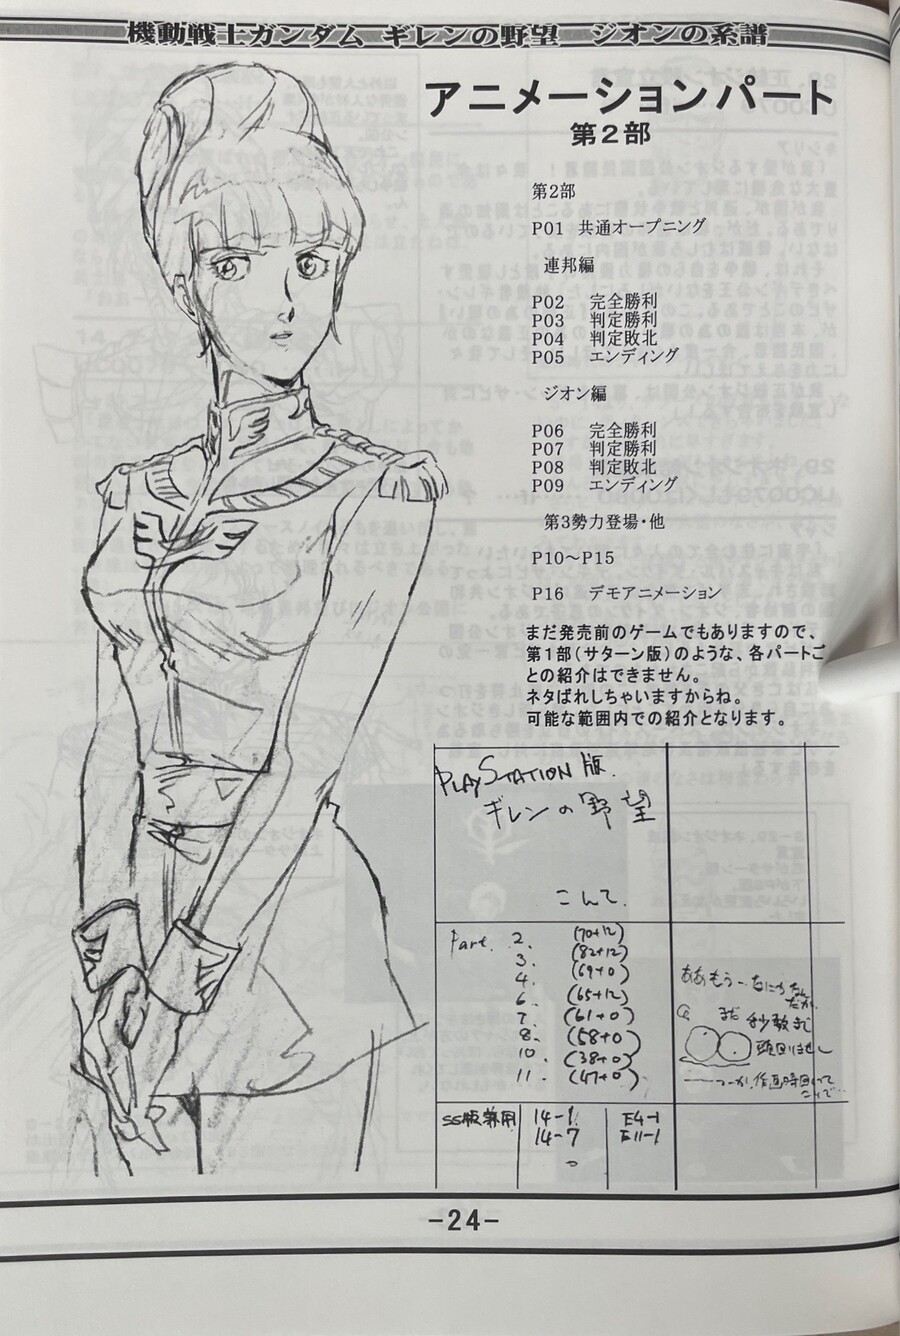 機動戦士ガンダム ギレンの野望 ジオンの系譜
アニメーションパート
第2部
第2部
P01 共通オープニング
連邦編
P02 完全勝利
P03 判定勝利
P04 判定敗北
P05 エンディング
ジオン編
P06 完全勝利
P07 判定勝利
P08 判定敗北
P09 エンディング
第3勢力登場・他
P10～P15
P16 デモアニメーション
まだ発売前のゲームでもありますので、
第1部(サターン版)のような、各パートご
との紹介はできません。
ネタばれしちゃいますからね。
可能な範囲内での紹介となります。
PLAYSTATION 版.
ギレンの野望
こんて.
Part. 2. (70+12)
3. (82+12)
4. (69+0)
6. (65+12)
7. (61+0)
8. (58+0)
10. (38+0)
11. (47+0)
ああもう
まだ 秒数まで
SS版兼用 14-1 E4-1
14-7 E11-1
-24-